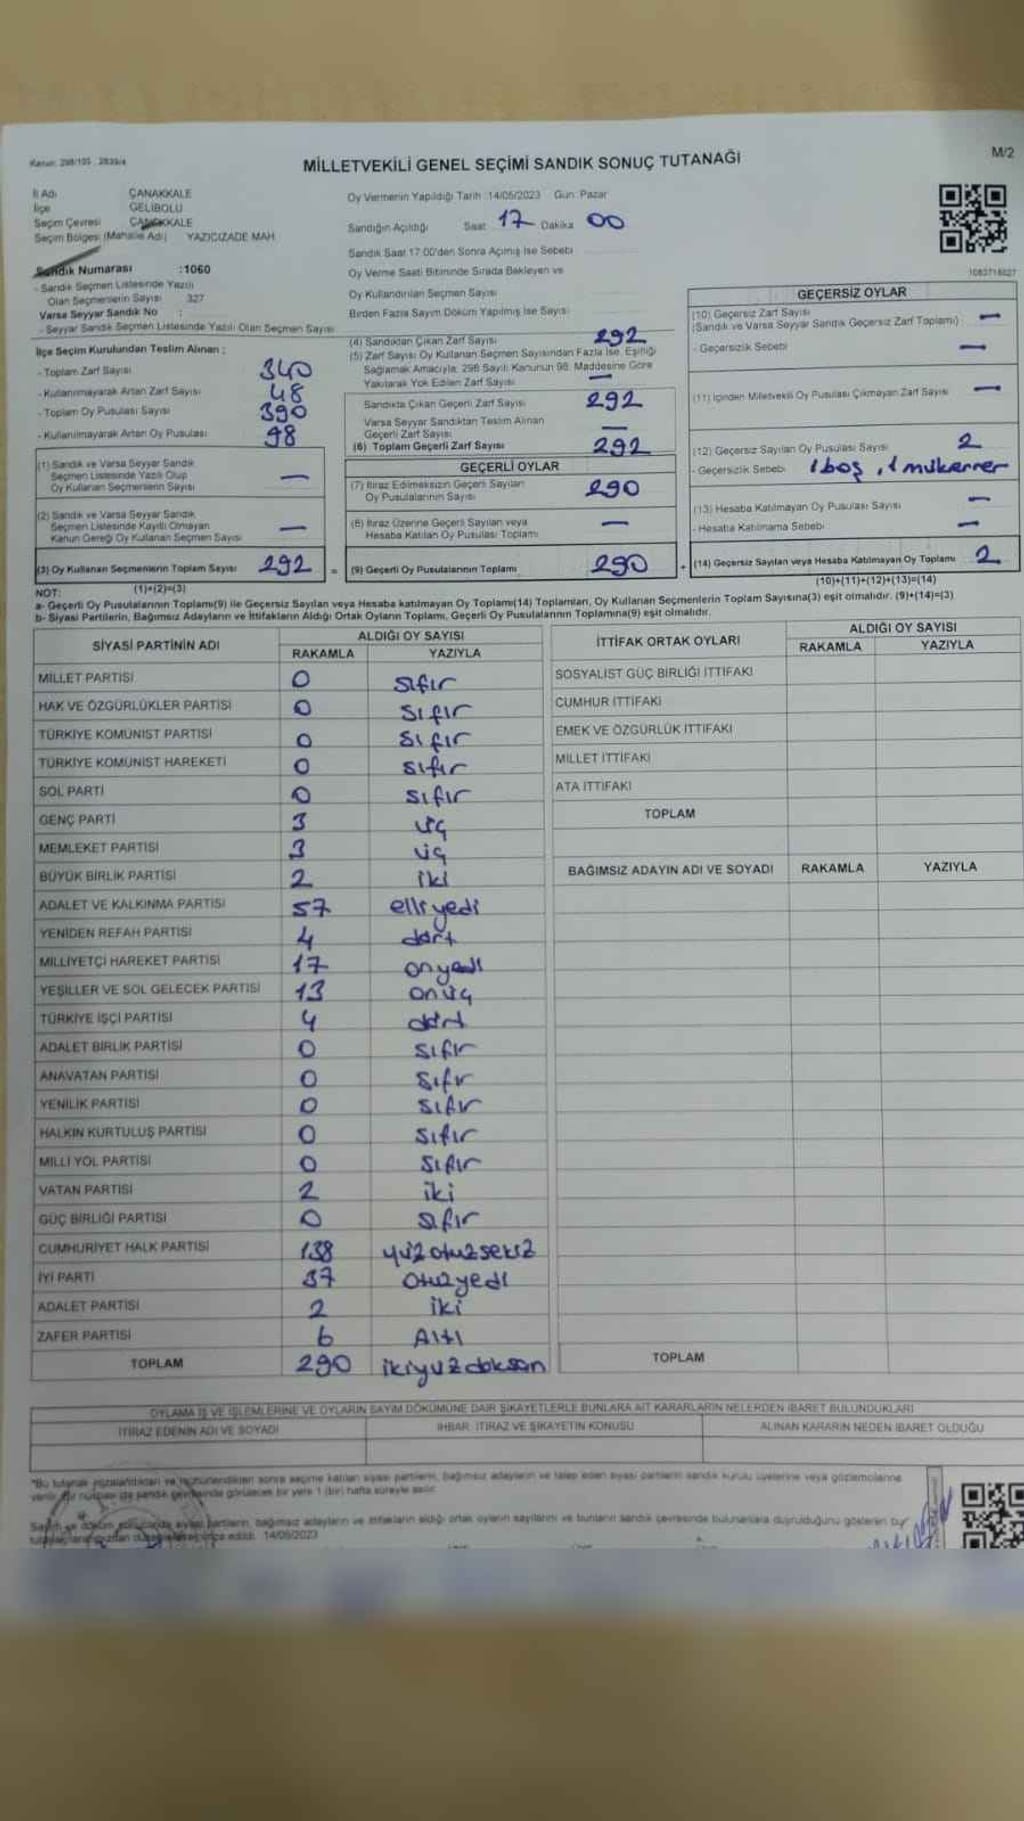 Kanun: 298/105 , 2839/4
M/2
MİLLETVEKİLİ GENEL SEÇİMİ SANDIK SONUÇ TUTANAĞI
İl Adı ÇANAKKALE
İlçe GELİBOLU
Seçim Çevresi ÇANAKKALE
Seçim Bölgesi (Mahalle Adı) YAZICIZADE MAH.
Sandık Numarası :1060
- Sandık Seçmen Listesinde Yazılı
Olan Seçmenlerin Sayısı 327
Varsa Seyyar Sandık No :
- Seyyar Sandık Seçmen Listesinde Yazılı Olan Seçmen Sayısı
Oy Vermenin Yapıldığı Tarih :14/05/2023 Gün: Pazar
Sandığın Açıldığı Saat 17 Dakika 00
Sandık Saat 17:00'den Sonra Açılmış İse Sebebi
Oy Verme Saati Bitiminde Sırada Bekleyen ve
Oy Kullandırılan Seçmen Sayısı
Birden Fazla Sayım Döküm Yapılmış İse Sayısı
1083716027
İlçe Seçim Kurulundan Teslim Alınan :
- Toplam Zarf Sayısı 340
- Kullanılmayarak Artan Zarf Sayısı 48
- Toplam Oy Pusulası Sayısı 390
- Kullanılmayarak Artan Oy Pusulası 98
(1) Sandık ve Varsa Seyyar Sandık
Seçmen Listesinde Yazılı Olup
Oy Kullanan Seçmenlerin Sayısı —
(2) Sandık ve Varsa Seyyar Sandık
Seçmen Listesinde Kayıtlı Olmayan
Kanun Gereği Oy Kullanan Seçmen Sayısı —
(3) Oy Kullanan Seçmenlerin Toplam Sayısı 292 =
(1)+(2)=(3)
(4) Sandıktan Çıkan Zarf Sayısı 292
(5) Zarf Sayısı Oy Kullanan Seçmen Sayısından Fazla İse, Eşitliği
Sağlamak Amacıyla, 298 Sayılı Kanunun 98. Maddesine Göre
Yakılarak Yok Edilen Zarf Sayısı —
Sandıkta Çıkan Geçerli Zarf Sayısı 292
Varsa Seyyar Sandıktan Teslim Alınan
Geçerli Zarf Sayısı —
(6) Toplam Geçerli Zarf Sayısı 292
GEÇERLİ OYLAR
(7) İtiraz Edilmeksizin Geçerli Sayılan
Oy Pusulalarının Sayısı 290
(8) İtiraz Üzerine Geçerli Sayılan veya
Hesaba Katılan Oy Pusulası Toplamı —
(9) Geçerli Oy Pusulalarının Toplamı 290 +
GEÇERSİZ OYLAR
(10) Geçersiz Zarf Sayısı
(Sandık ve Varsa Seyyar Sandık Geçersiz Zarf Toplamı) —
- Geçersizlik Sebebi —
(11) İçinden Milletvekili Oy Pusulası Çıkmayan Zarf Sayısı —
(12) Geçersiz Sayılan Oy Pusulası Sayısı 2
- Geçersizlik Sebebi 1 boş, 1 mükerrer
(13) Hesaba Katılmayan Oy Pusulası Sayısı —
- Hesaba Katılmama Sebebi —
(14) Geçersiz Sayılan veya Hesaba Katılmayan Oy Toplamı 2
(10)+(11)+(12)+(13)=(14)
NOT:
a- Geçerli Oy Pusulalarının Toplamı(9) ile Geçersiz Sayılan veya Hesaba katılmayan Oy Toplamı(14) Toplamları, Oy Kullanan Seçmenlerin Toplam Sayısına(3) eşit olmalıdır. (9)+(14)=(3)
b- Siyasi Partilerin, Bağımsız Adayların ve İttifakların Aldığı Ortak Oyların Toplamı, Geçerli Oy Pusulalarının Toplamına(9) eşit olmalıdır.
SİYASİ PARTİNİN ADI ALDIĞI OY SAYISI
RAKAMLA YAZIYLA
MİLLET PARTİSİ 0 sıfır
HAK VE ÖZGÜRLÜKLER PARTİSİ 0 sıfır
TÜRKİYE KOMÜNİST PARTİSİ 0 sıfır
TÜRKİYE KOMÜNİST HAREKETİ 0 sıfır
SOL PARTİ 0 sıfır
GENÇ PARTİ 3 üç
MEMLEKET PARTİSİ 3 üç
BÜYÜK BİRLİK PARTİSİ 2 iki
ADALET VE KALKINMA PARTİSİ 57 elliyedi
YENİDEN REFAH PARTİSİ 4 dört
MİLLİYETÇİ HAREKET PARTİSİ 17 onyedi
YEŞİLLER VE SOL GELECEK PARTİSİ 13 onüç
TÜRKİYE İŞÇİ PARTİSİ 4 dört
ADALET BİRLİK PARTİSİ 0 sıfır
ANAVATAN PARTİSİ 0 sıfır
YENİLİK PARTİSİ 0 sıfır
HALKIN KURTULUŞ PARTİSİ 0 sıfır
MİLLİ YOL PARTİSİ 0 sıfır
VATAN PARTİSİ 2 iki
GÜÇ BİRLİĞİ PARTİSİ 0 sıfır
CUMHURİYET HALK PARTİSİ 138 yüzotuzsekiz
İYİ PARTİ 37 otuzyedi
ADALET PARTİSİ 2 iki
ZAFER PARTİSİ 6 Altı
TOPLAM 290 ikiyüzdoksan
İTTİFAK ORTAK OYLARI ALDIĞI OY SAYISI
RAKAMLA YAZIYLA
SOSYALİST GÜÇ BİRLİĞİ İTTİFAKI
CUMHUR İTTİFAKI
EMEK VE ÖZGÜRLÜK İTTİFAKI
MİLLET İTTİFAKI
ATA İTTİFAKI
TOPLAM
BAĞIMSIZ ADAYIN ADI VE SOYADI RAKAMLA YAZIYLA
TOPLAM
OYLAMA İŞ VE İŞLEMLERİNE VE OYLARIN SAYIM DÖKÜMÜNE DAİR ŞİKAYETLERLE BUNLARA AİT KARARLARIN NELERDEN İBARET BULUNDUKLARI
İTİRAZ EDENİN ADI VE SOYADI İHBAR, İTİRAZ VE ŞİKAYETİN KONUSU ALINAN KARARIN NEDEN İBARET OLDUĞU
"Bu tutanak imzalandıktan ve mühürlendikten sonra seçime katılan siyasi partilerin, bağımsız adayların ve talep eden siyasi partilerin sandık kurulu üyelerine veya gözlemcilerine
verilir, bir nüshası da sandık çevresinde görülecek bir yere 1 (bir) hafta süreyle asılır.
Sayım ve döküm sonucunda siyasi partilerin, bağımsız adayların ve ittifakların aldığı ortak oyların sayılarını ve bunların sandık çevresinde bulunanlara duyrulduğunu gösteren bu
14/05/2023